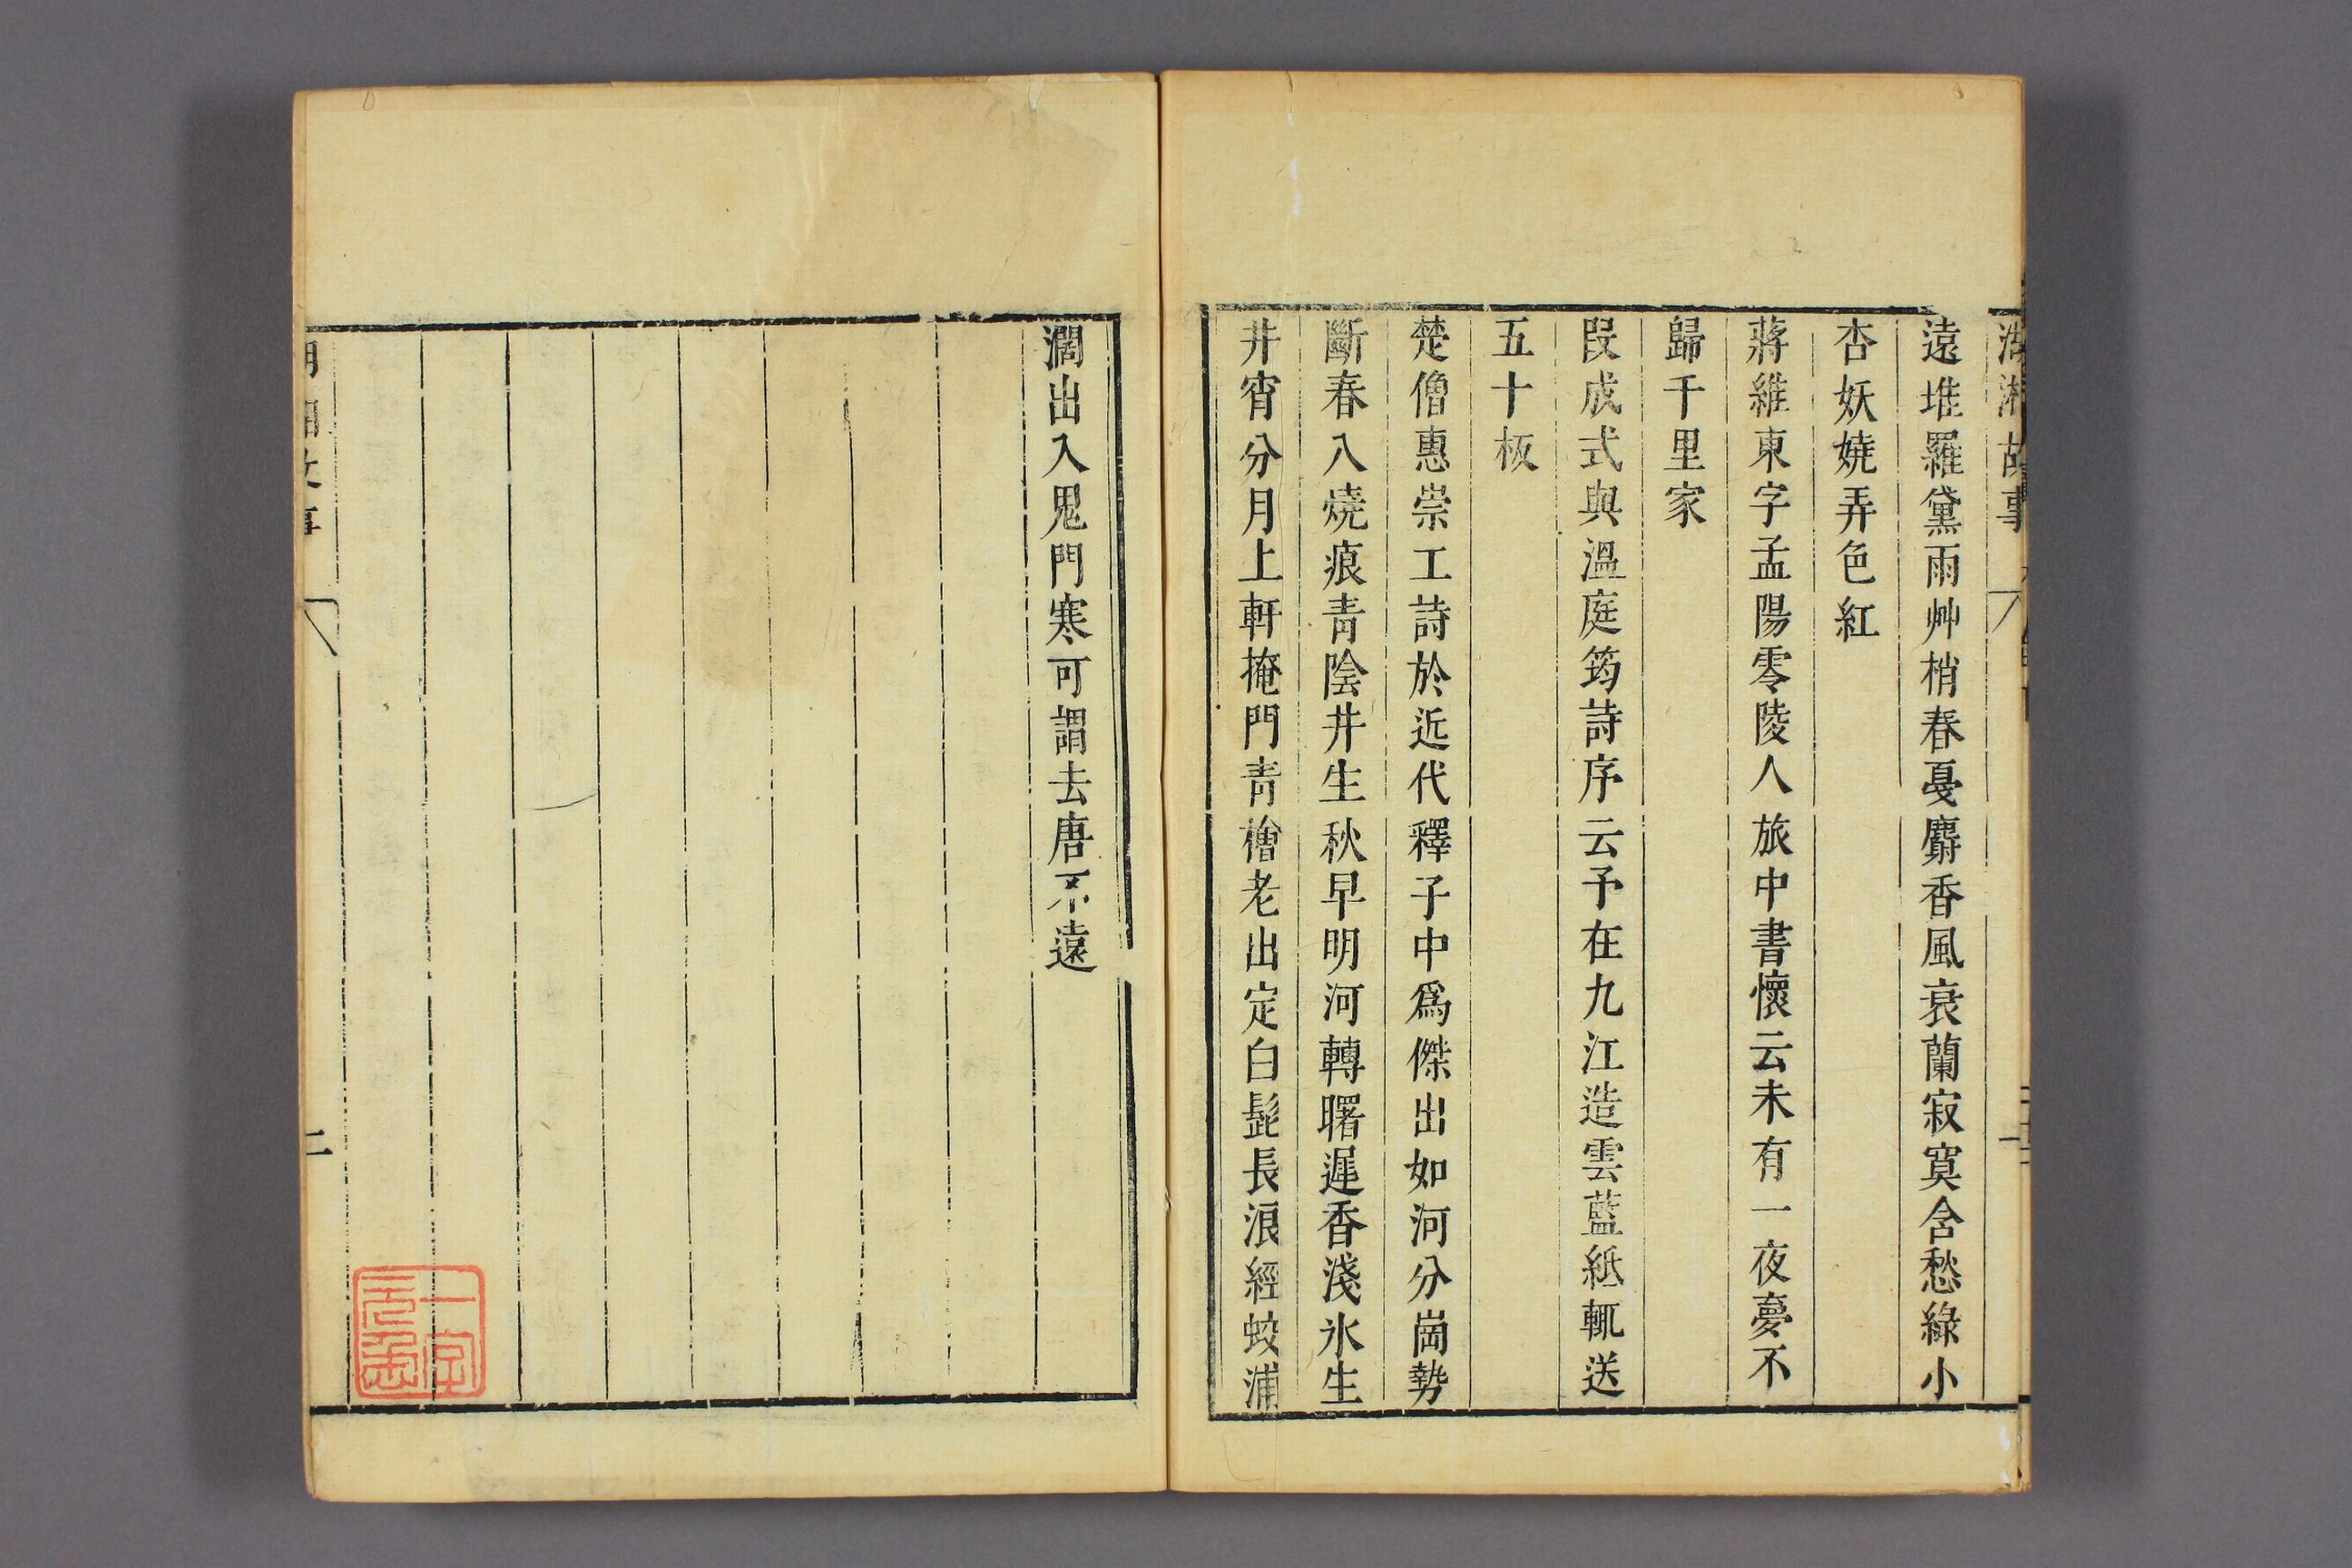 湖湘故事
遠堆羅黛雨艸梢春戛麝香風衰蘭寂寞含愁綠小
杏妖嬈弄色紅
蔣維東字孟陽零陵人旅中書懷云未有一夜夢不
歸千里家
段成式與溫庭筠詩序云予在九江造雲藍紙輒送
五十板
楚僧惠崇工詩於近代釋子中爲傑出如河分崗勢
斷春入燒痕靑陰井生秋早明河轉曙遲香淺氷生
井宵分月上軒掩門靑檜老出定白髭長浪經蛟浦
濶出入鬼門寒可謂去唐不遠
湖湘故事
二